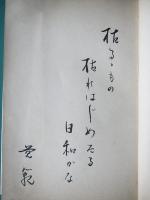 枯るゝもの
枯れはじめたる
日和かな